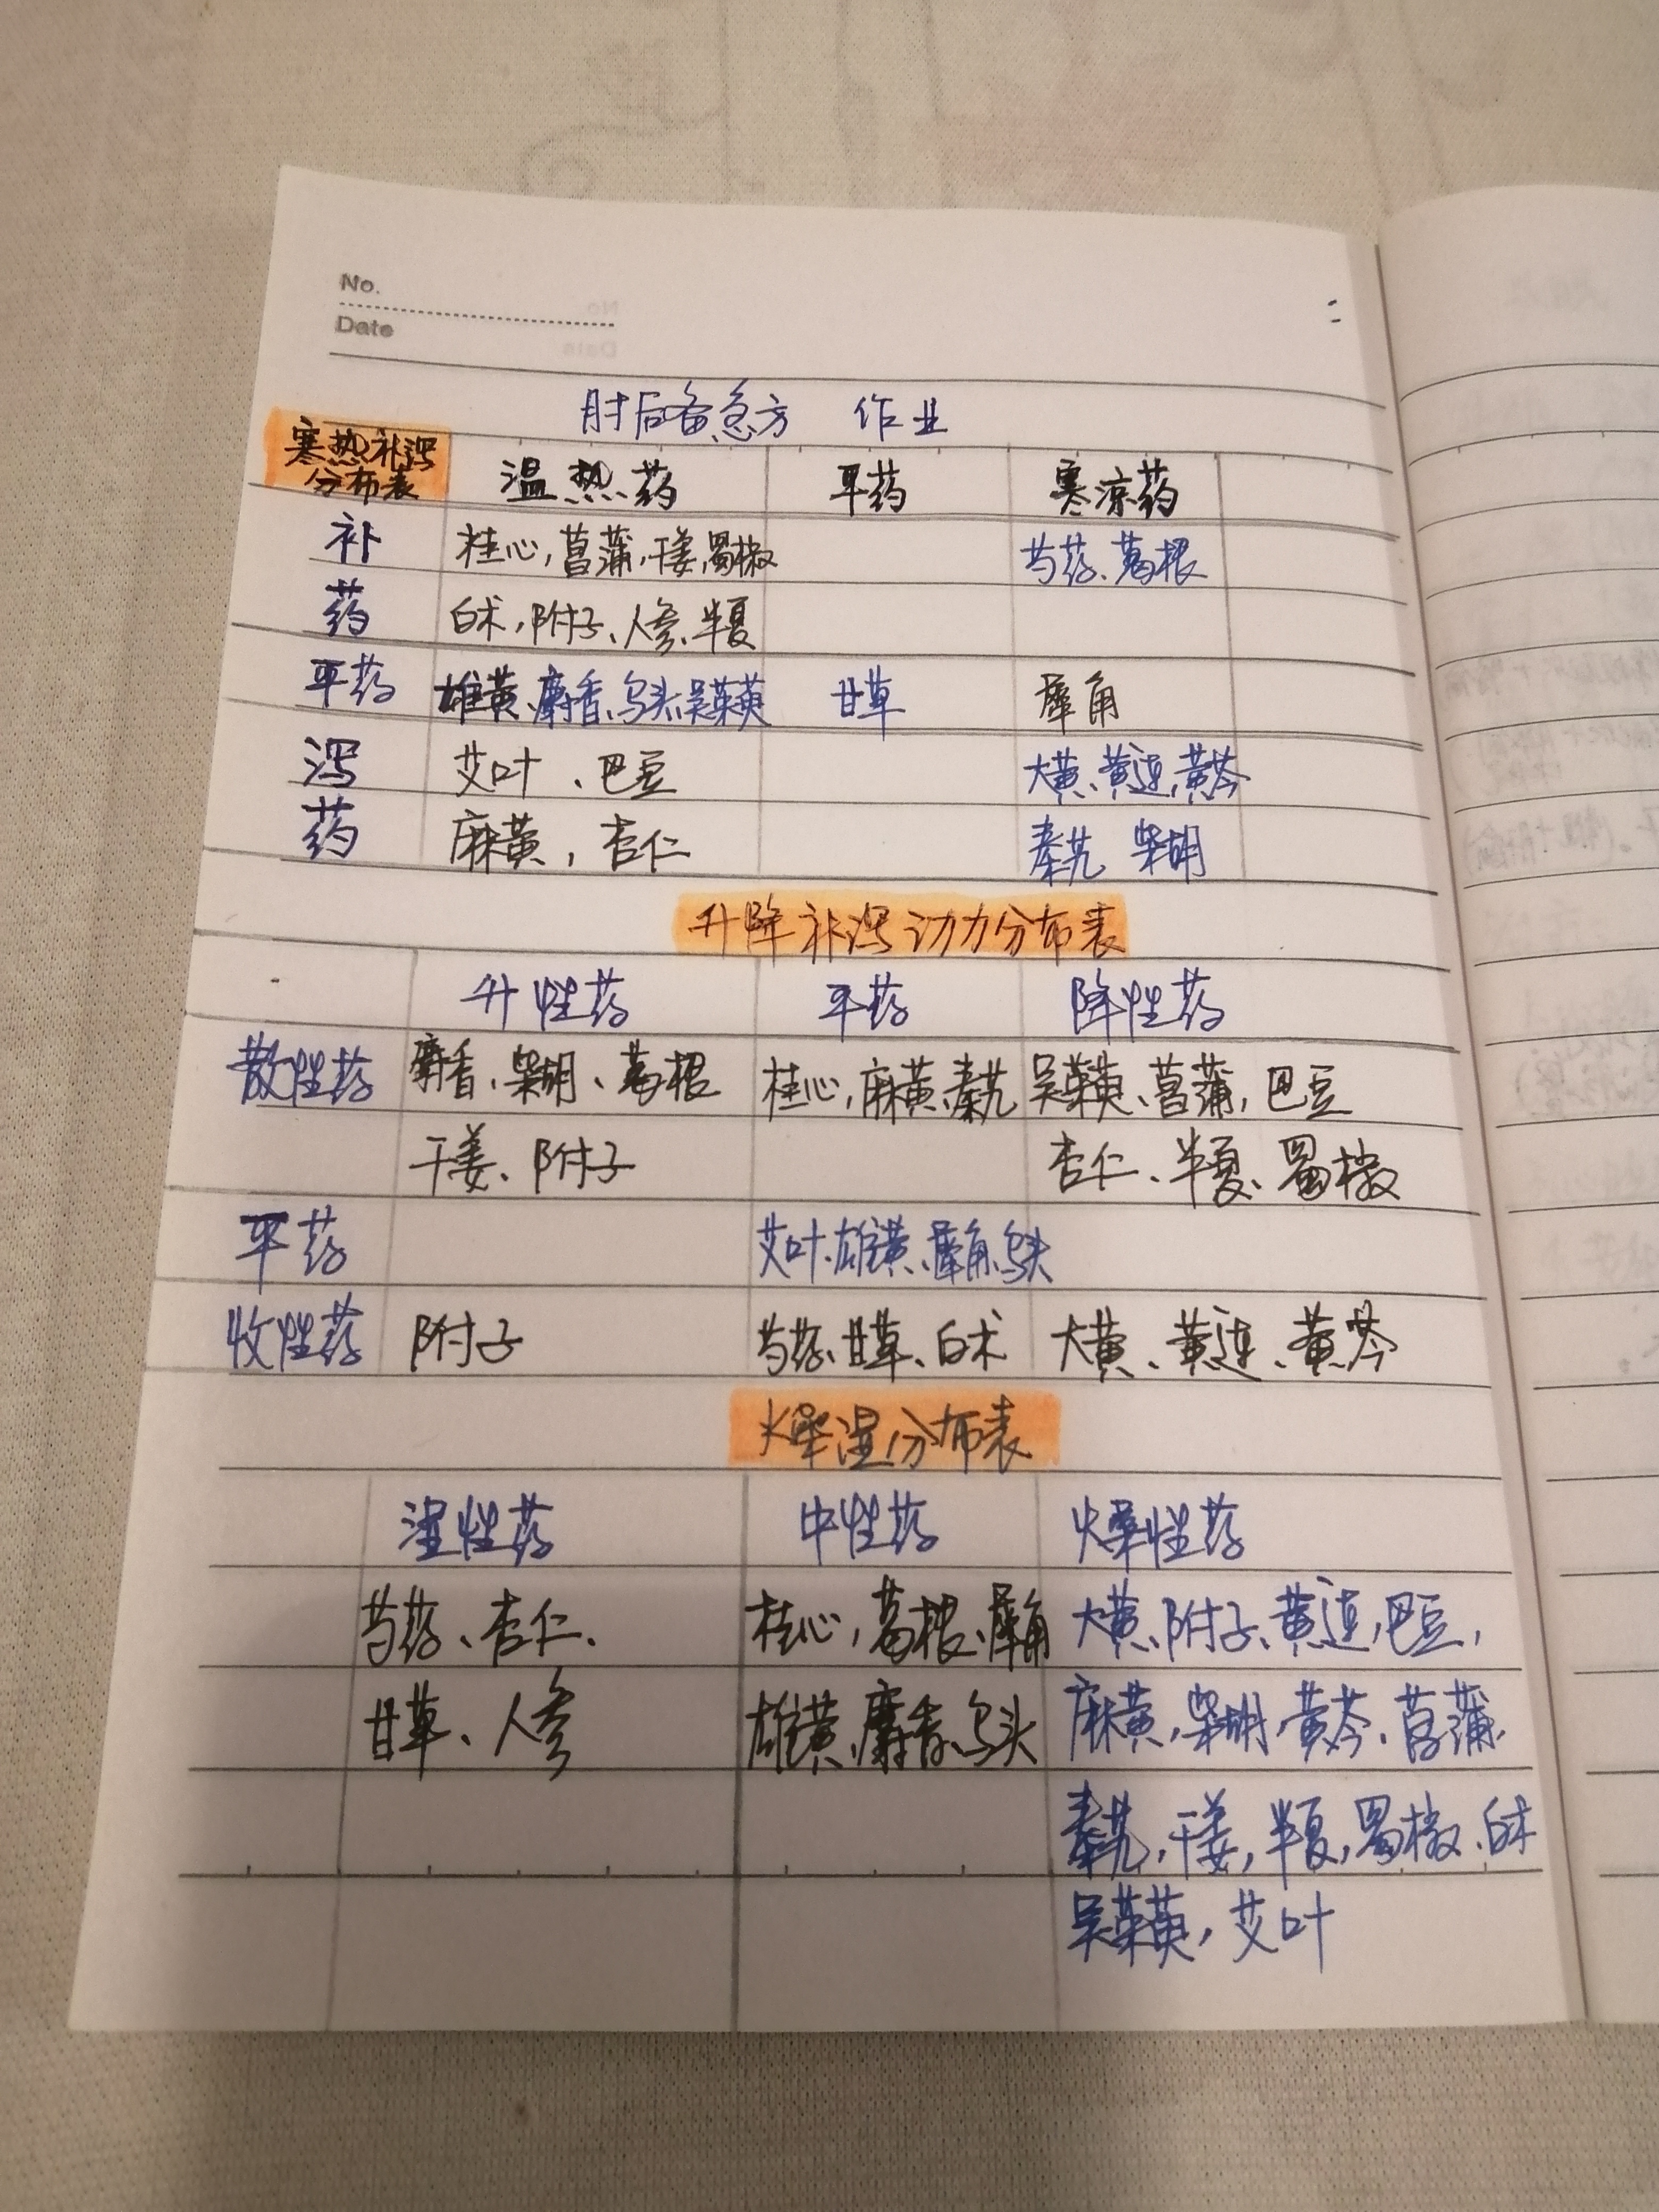 No.
Date
肘后备急方 作业
寒热补泻
分布表 温热药 平药 寒凉药
补 桂心,菖蒲,干姜,蜀椒 芍药、葛根
药 白术,附子、人参、半夏
平药 雄黄、麝香、乌头、吴茱萸 甘草 犀角
泻 艾叶、巴豆 大黄、黄连,黄芩
药 麻黄,杏仁 秦艽 柴胡
升降补泻动力分布表
升性药 平药 降性药
散性药 麝香、柴胡、葛根 桂心,麻黄、秦艽 吴茱萸、菖蒲,巴豆
干姜、附子 杏仁、半夏、蜀椒
平药 艾叶、雄黄、犀角、乌头
收性药 附子 芍药、甘草、白术 大黄、黄连、黄芩
燥湿分布表
湿性药 中性药 燥性药
芍药、杏仁、 桂心,葛根、犀角 大黄、附子、黄连,巴豆,
甘草、人参 雄黄、麝香、乌头 麻黄,柴胡,黄芩、菖蒲,
秦艽,干姜,半夏,蜀椒、白术
吴茱萸,艾叶